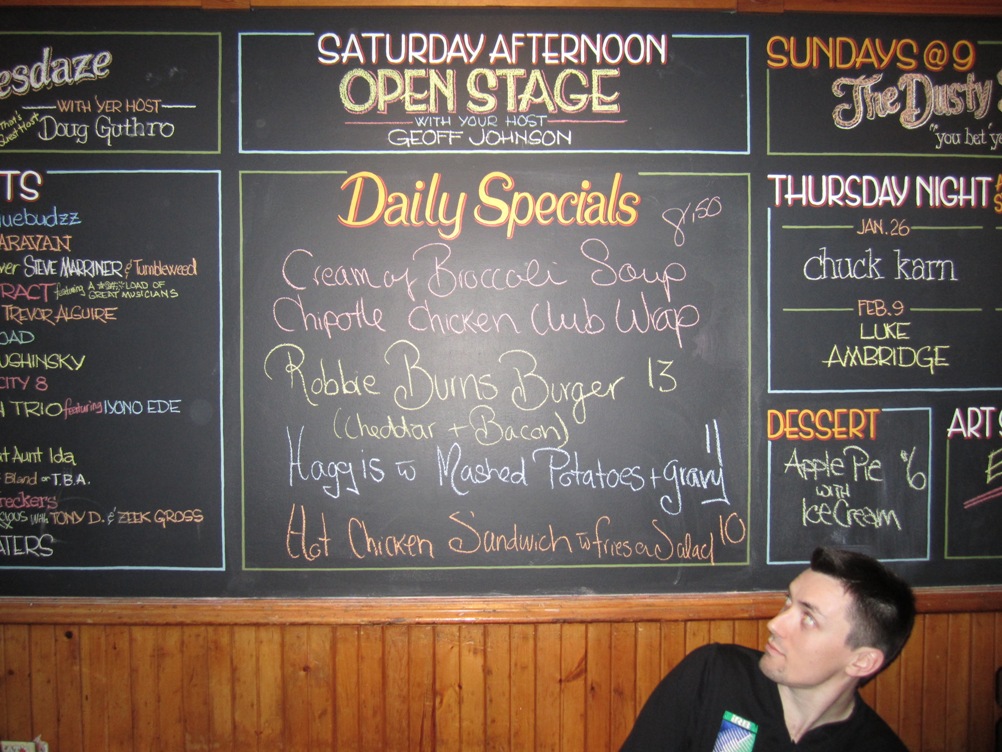 esdaze
WITH 'YER HOST
That's
Guest Host
Doug Guthro
TS
uebudzz
ARAVAN
ver STEVE MARRINER & Tumbleweed
RACT featuring A *@#%* LOAD OF
GREAT MUSICIANS
TREVOR ALGUIRE
OAD
UGHINSKY
CITY 8
H TRIO featuring IYONO EDE
t Aunt Ida
Bland or T.B.A.
reckers
cious With TONY D. & ZEEK GROSS
ATERS
SATURDAY AFTERNOON
OPEN STAGE
WITH YOUR HOST
GEOFF JOHNSON
Daily Specials
8.50
Cream of Broccoli Soup
Chipotle Chicken Club Wrap
Robbie Burns Burger 13
(Cheddar + Bacon)
Haggis w Mashed Potatoes + gravy 11
Hot Chicken Sandwich w fries or Salad 10
SUNDAYS @ 9
The Dusty
"you bet 'ye
THURSDAY NIGHT
JAN. 26
chuck karn
FEB. 9
LUKE
AMBRIDGE
DESSERT
Apple Pie $6
WITH
Ice Cream
ART
E